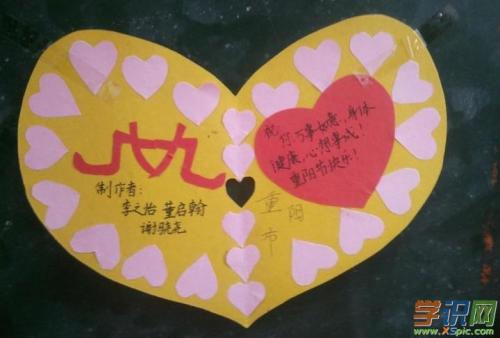 九九
制作者：
董启翰
祝你万事如意，身体
健康，心想事成！
重阳节快乐！
重阳节
学识网
www.XSpic.com